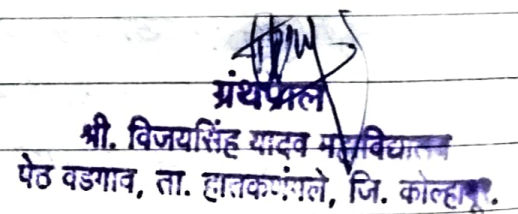 ग्रंथपाल
श्री. विजयसिंह यादव महाविद्यालय
पेठ वडगाव, ता. हातकणंगले, जि. कोल्हापूर.